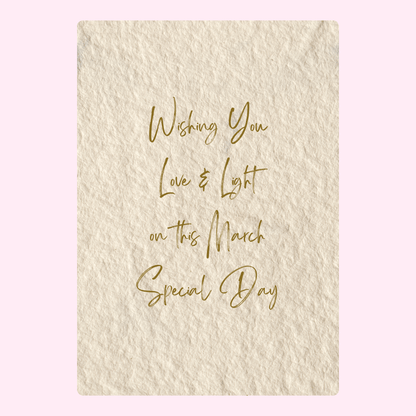 Wishing You
Love & Light
on this March
Special Day